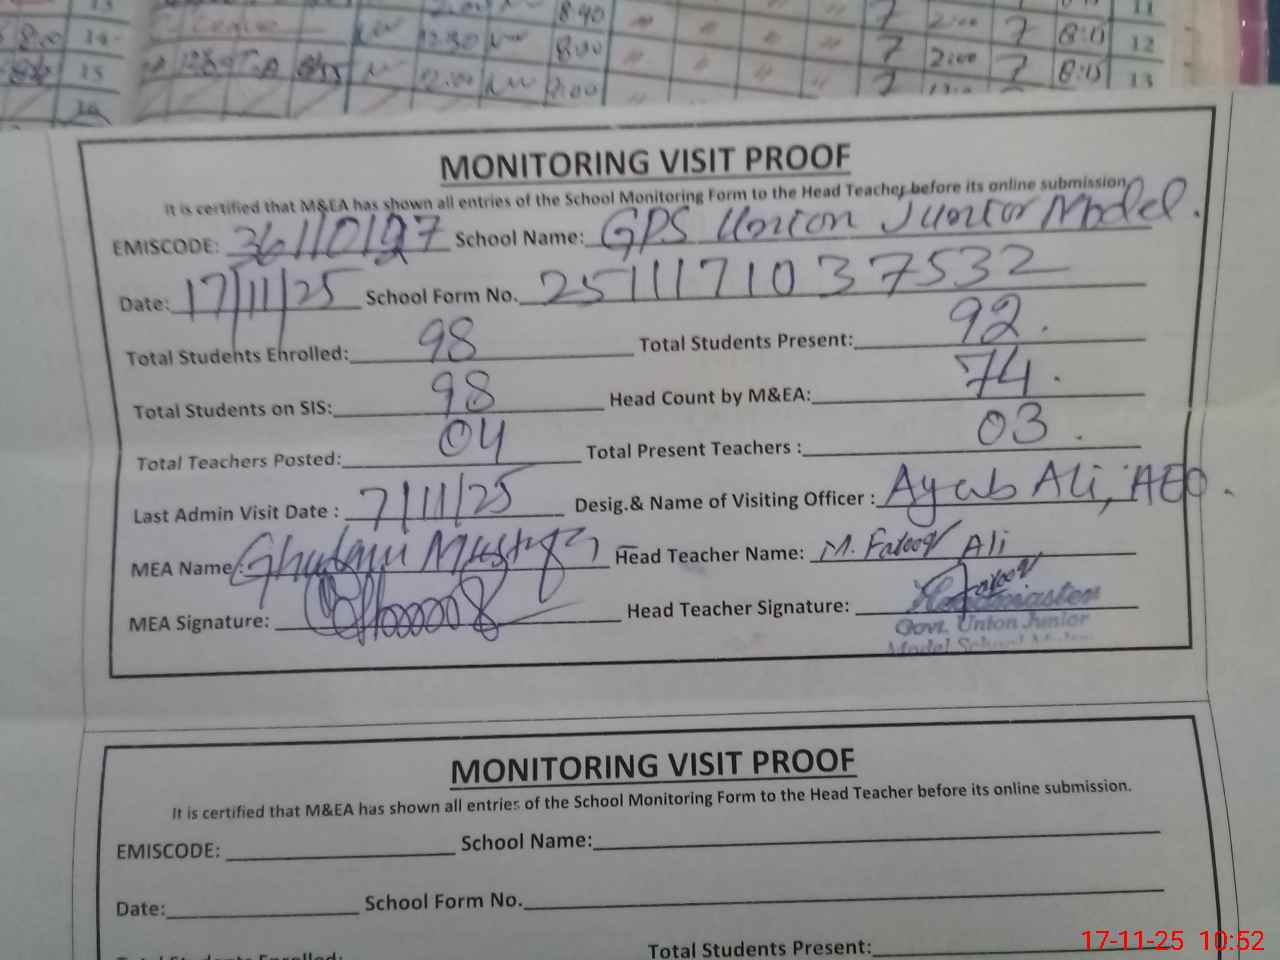 13
8:40
11
8:00 14
12:30
8:00
7 2:00 7 8:15 12
15
12:00
2:00
7 2:00 7 8:15 13
MONITORING VISIT PROOF
It is certified that M&EA has shown all entries of the School Monitoring Form to the Head Teacher before its online submission.
EMISCODE: 36110197 School Name: GPS Union Junior Model.
Date: 17/11/25 School Form No. 2511171037532
Total Students Enrolled: 98 Total Students Present: 92.
Total Students on SIS: 98 Head Count by M&EA: 74.
Total Teachers Posted: 04 Total Present Teachers : 03.
Last Admin Visit Date : 7/11/25 Desig.& Name of Visiting Officer : Ayab Ali, AEO.
MEA Name: Ghulam Mustafa Head Teacher Name: M. Farooq Ali
MEA Signature: Head Teacher Signature: Farooq
Headmaster
Govt. Union Junior
Model School
MONITORING VISIT PROOF
It is certified that M&EA has shown all entries of the School Monitoring Form to the Head Teacher before its online submission.
EMISCODE: School Name:
Date: School Form No.
Total Students Enrolled: Total Students Present:
17-11-25 10:52